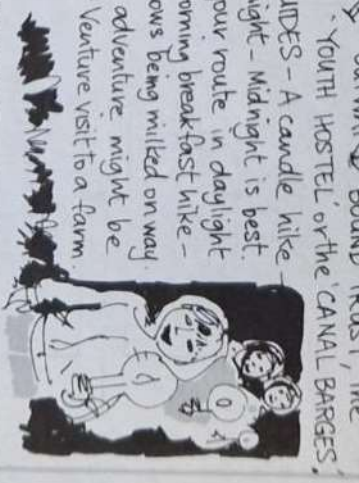 BOUND
'YOUTH HOSTEL' or the 'CANAL BARGES'.
UIDES - A candle hike
ight - Midnight is best.
our route in daylight
orning breakfast hike -
ows being milked on way.
adventure might be
Venture visit to a farm.